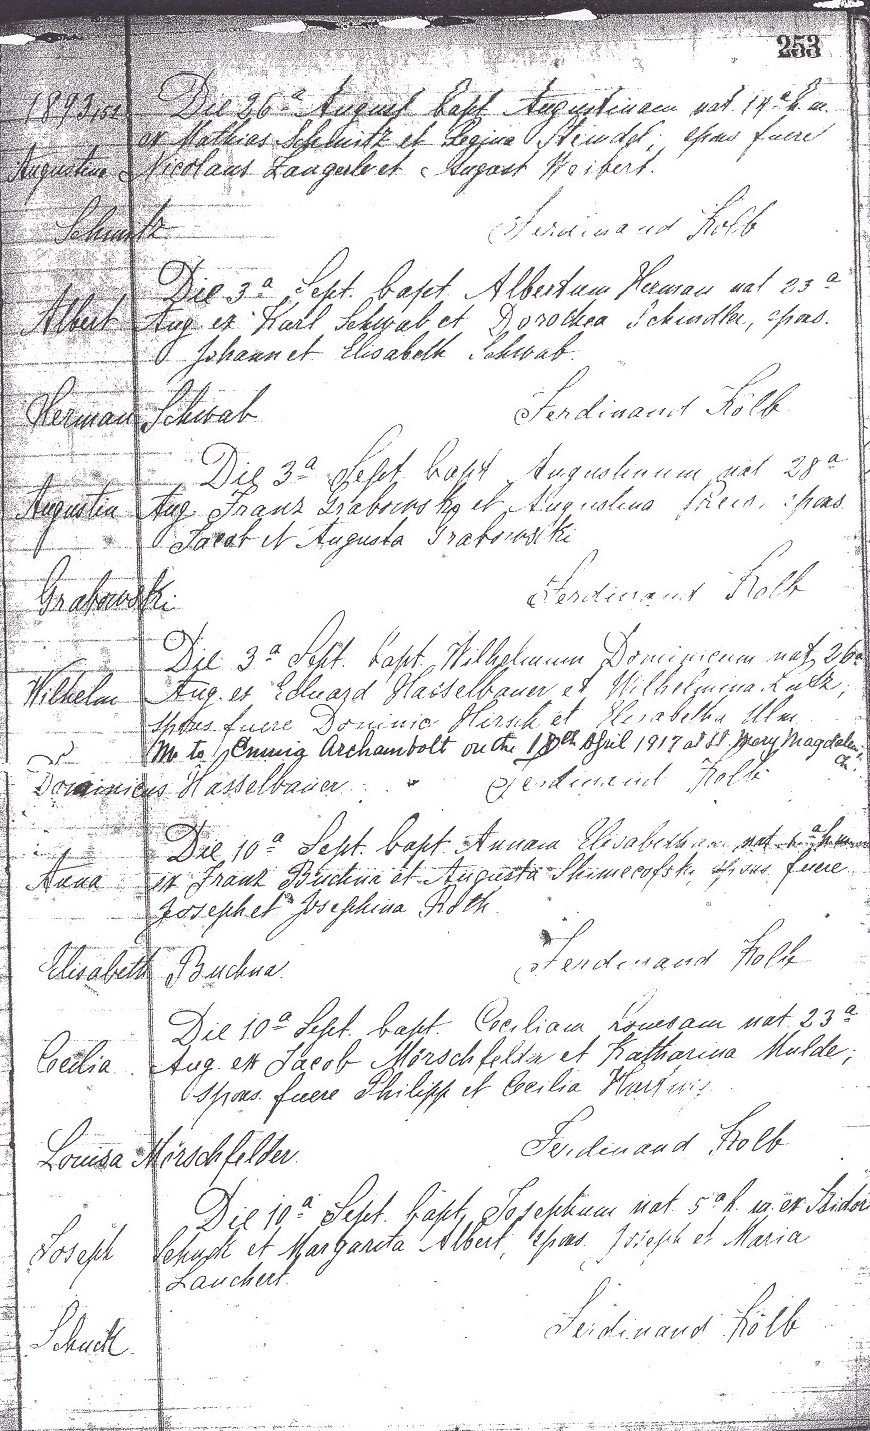 253
1893,151 Die 26a August bapt Augustinam nat 14a h. m.
ex Mathias Schmitz et Regina Steindel; spons fuere
Augustina Nicolaus Langerle et August Weibert.
Schmitz Ferdinand Kolb
Die 3a Sept. bapt. Albertum Herman nat 23a
Albert Aug. ex Karl Schwab et Dorothea Schindler, spons.
Johann et Elisabeth Schwab.
Herman Schwab Ferdinand Kolb
Die 3a Sept bapt Augustinum nat 28a
Augustin Aug Franz Grabowsky et Augustina spons
Jacob et Augusta Grabowski
Grabowski Ferdinand Kolb
Die 3a Sept. bapt. Wilhelmum Dominicum nat 26a
Wilhelm Aug. ex Eduard Hasselbauer et Wilhelmina Lutz;
spons. fuere Dominic Hirsch et Elisabetha Ulm
M. to Emma Archambolt on the 18th April 1917 at St Mary Magdalen's Ch.
Dominicus Hasselbauer Ferdinand Kolb
Die 10a Sept. bapt. Annam Elisabetham nat
Anna ex Franz Buchna et Augusta Shimecofski, spons. fuere
Joseph et Josephina Roth
Elisabeth Buchna Ferdinand Kolb
Die 10a Sept. bapt. Ceciliam Louisam nat. 23a
Cecilia Aug. ex Jacob Mörschfelder et Katharina Mulde;
spons. fuere Philipp et Cecilia Hartwig
Louisa Mörschfelder Ferdinand Kolb
Die 10a Sept. bapt. Josephum nat. 5a h. m. ex Isidor
Joseph Schuck et Margareta Albert, spons. Joseph et Maria
Lauchert
Schuck. Ferdinand Kolb